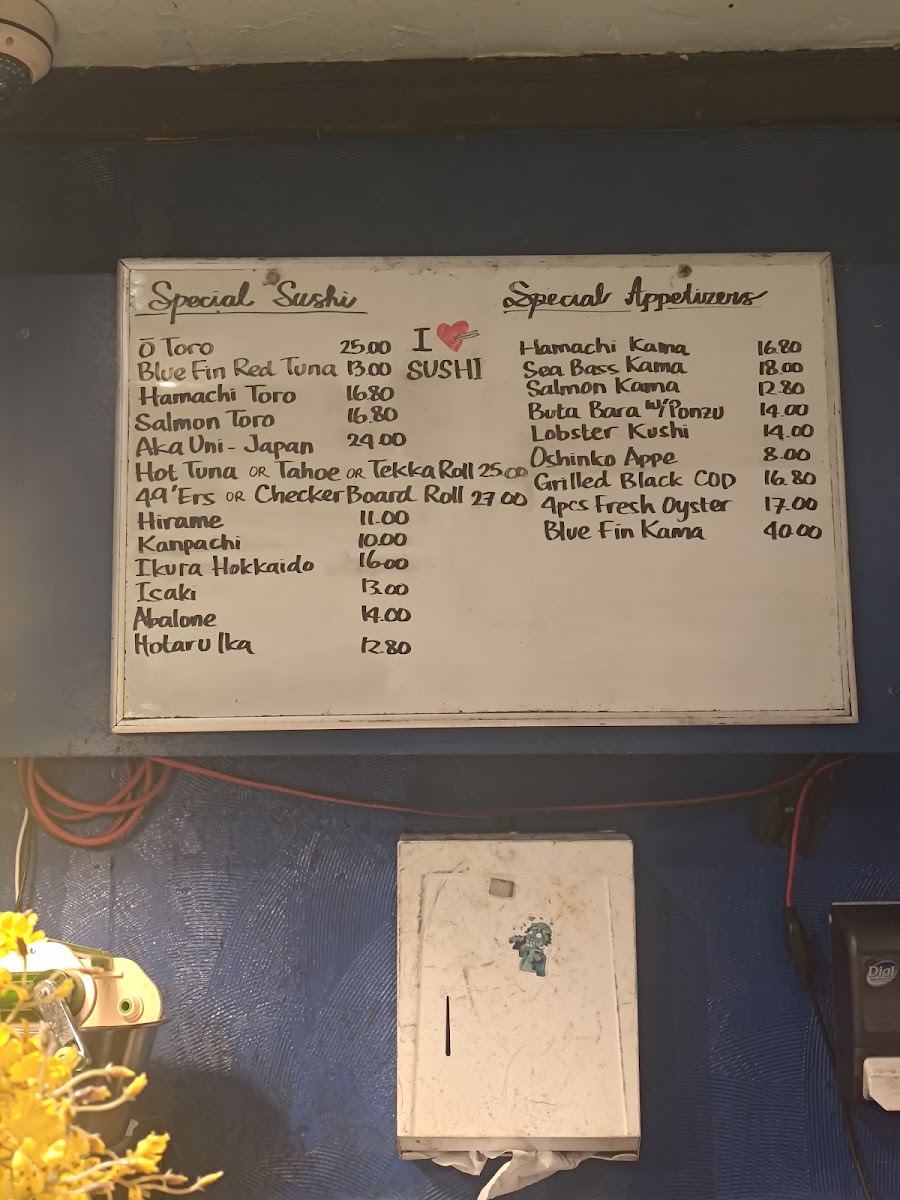 Special Sushi
Ō Toro 25.00
Blue Fin Red Tuna 13.00
Hamachi Toro 16.80
Salmon Toro 16.80
Aka Uni - Japan 24.00
Hot Tuna OR Tahoe OR Tekka Roll 25.00
49'Ers OR Checker Board Roll 27.00
Hirame 11.00
Kanpachi 10.00
Ikura Hokkaido 16.00
Isaki 13.00
Abalone 14.00
Hotaru Ika 12.80
I ❤
SUSHI
Special Appetizers
Hamachi Kama 16.80
Sea Bass Kama 18.00
Salmon Kama 12.80
Buta Bara w/Ponzu 14.00
Lobster Kushi 14.00
Oshinko Appe 8.00
Grilled Black COD 16.80
4pcs Fresh Oyster 17.00
Blue Fin Kama 40.00
Dial